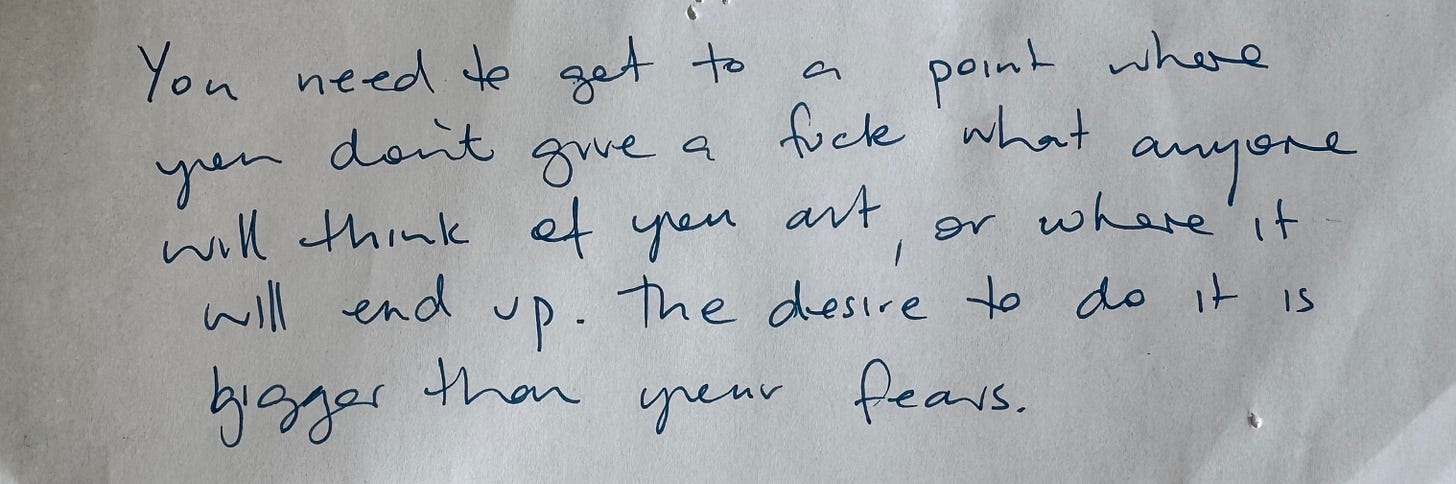 You need to get to a point where
you don't give a fuck what anyone
will think of you art, or where it
will end up. The desire to do it is
bigger than your fears.